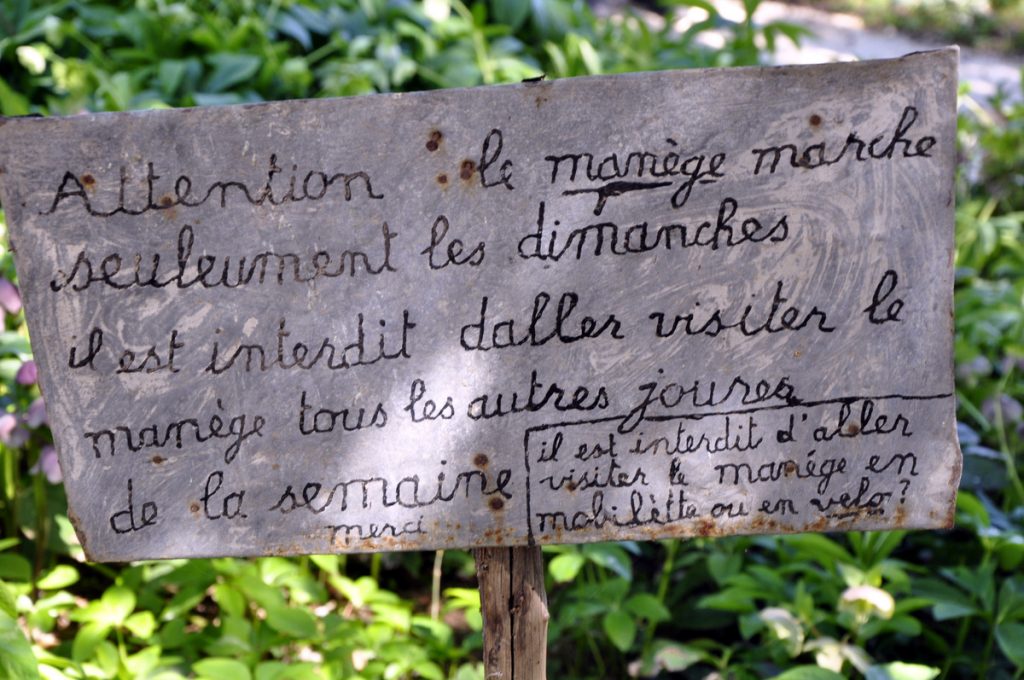 Attention le manège marche
seuleument les dimanches
il est interdit daller visiter le
manège tous les autres joures
de la semaine
merci
il est interdit d'aller
visiter le manége en
mobilètte ou en velo?